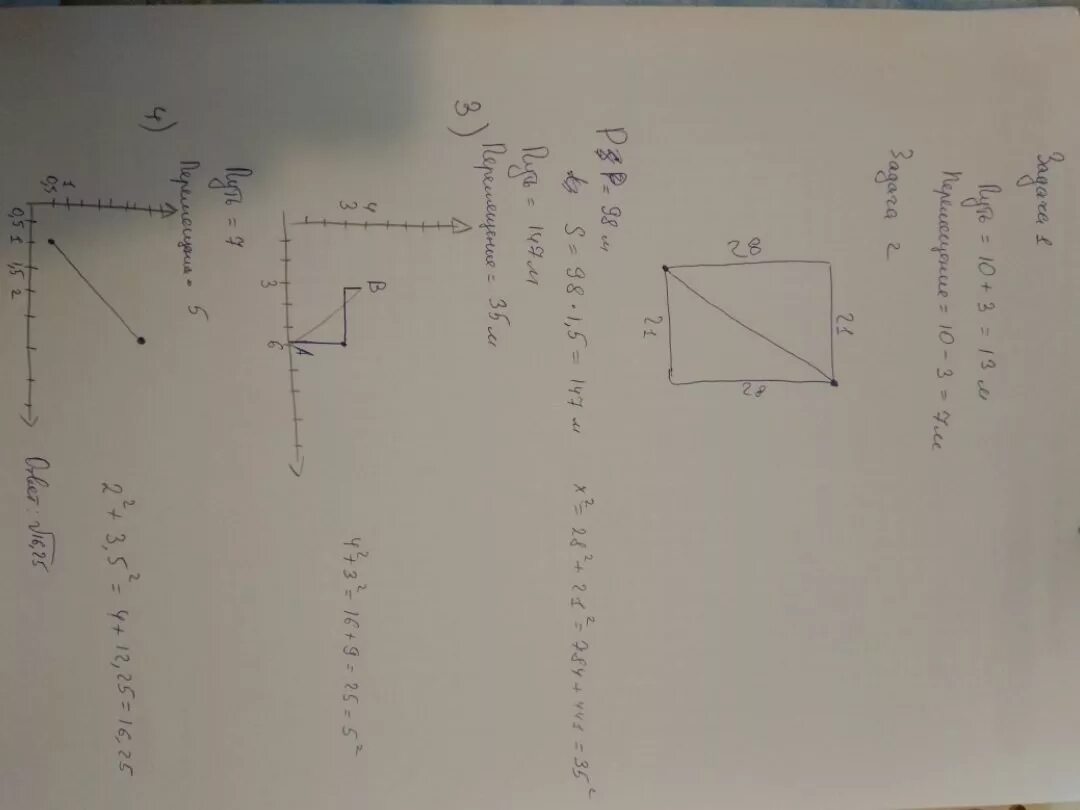 Задача 1
Путь = 10 + 3 = 13 м
Перемещение = 10 - 3 = 7 м
Задача 2
28
21
21
28
P = 98 м
S = 98 · 1,5 = 147 м
x² = 28² + 21² = 784 + 441 = 35²
Путь = 147 м
Перемещение = 35 м
3)
4
3
B
3
6
A
4² + 3² = 16 + 9 = 25 = 5²
Путь = 7
Перемещение = 5
4)
1
0,5
0,5
1
1,5
2
2² + 3,5² = 4 + 12,25 = 16,25
Ответ: √16,25